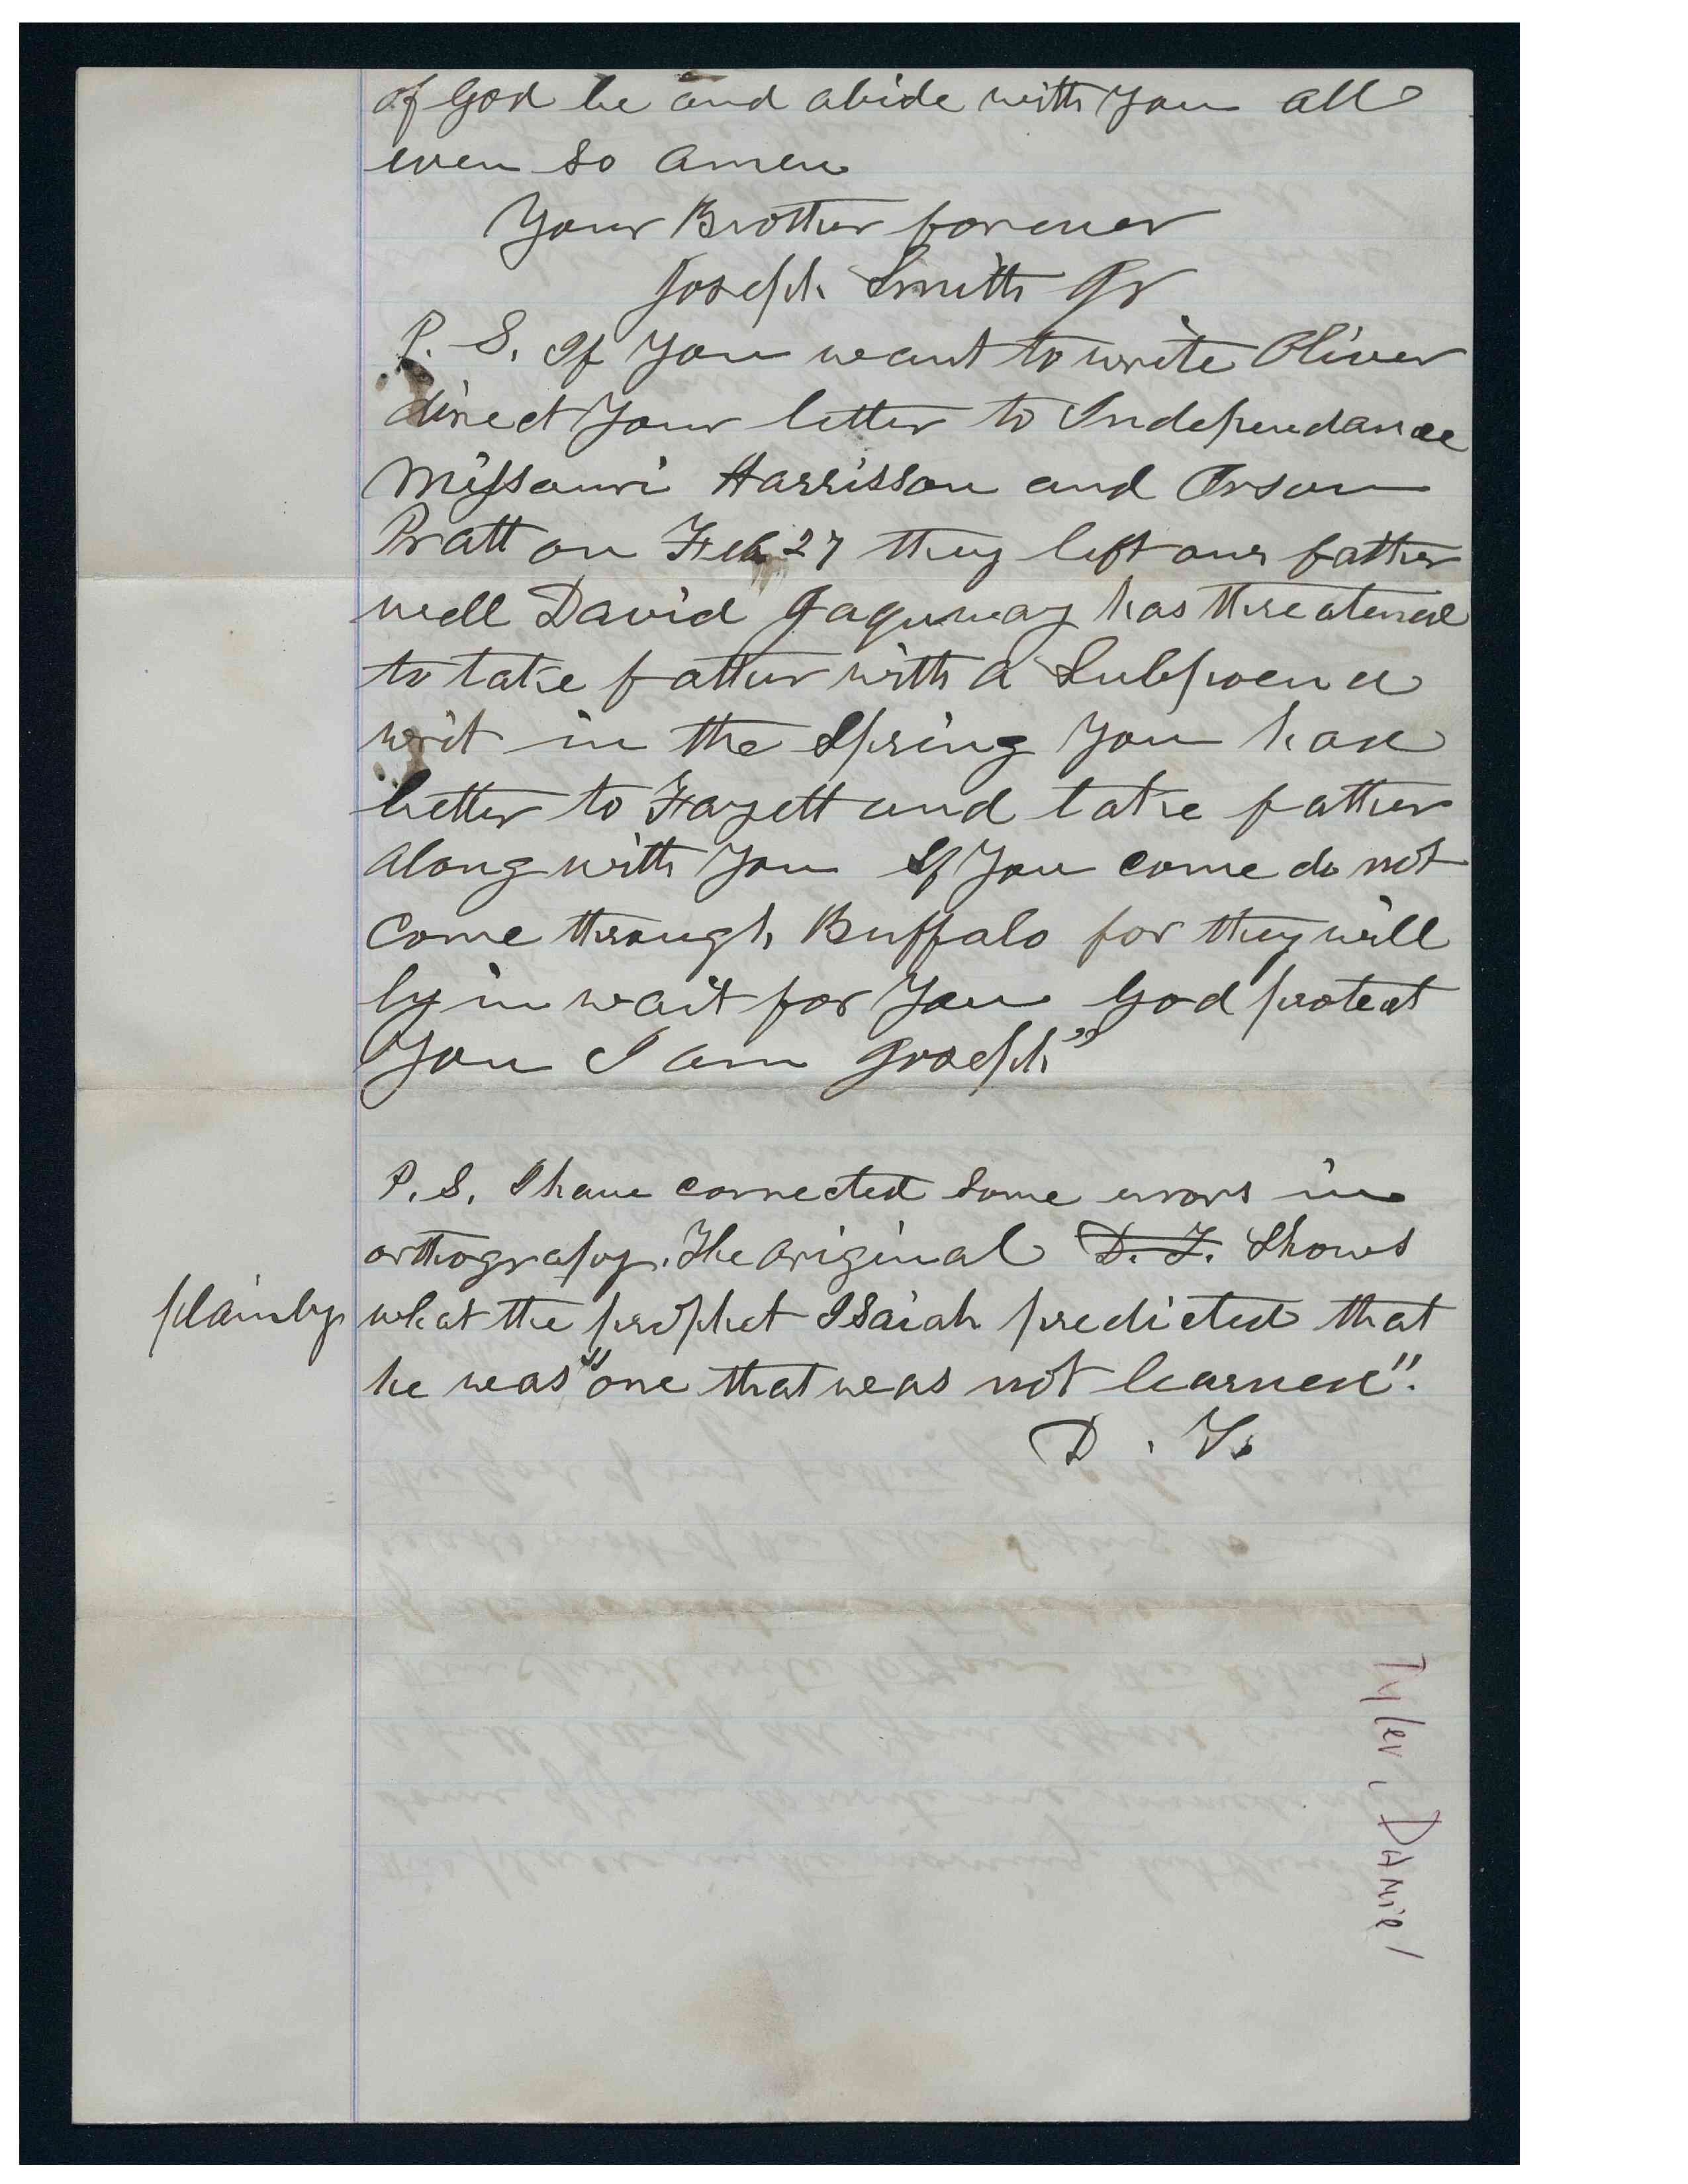 of God be and abide with you all
even so amen
Your Brother forever
Joseph Smith Jr
P. S. If you want to write Oliver
direct your letter to Independance
Missouri Harrisson and Orson
Pratt on Feb 27 they left our father
well David Jaquway has threatened
to take father with a Subpoena
writ in the Spring You had
better to Fayett and take father
along with you If you come do not
come through Buffalo for they will
ly in wait for you God protect
You I am Joseph"
P. S. I have corrected some errors in
orthograpy. The original D. T. Shows
plainly what the prophet Isaiah predicted that
he was "one that was not learned".
D. T.
Tyler, Daniel